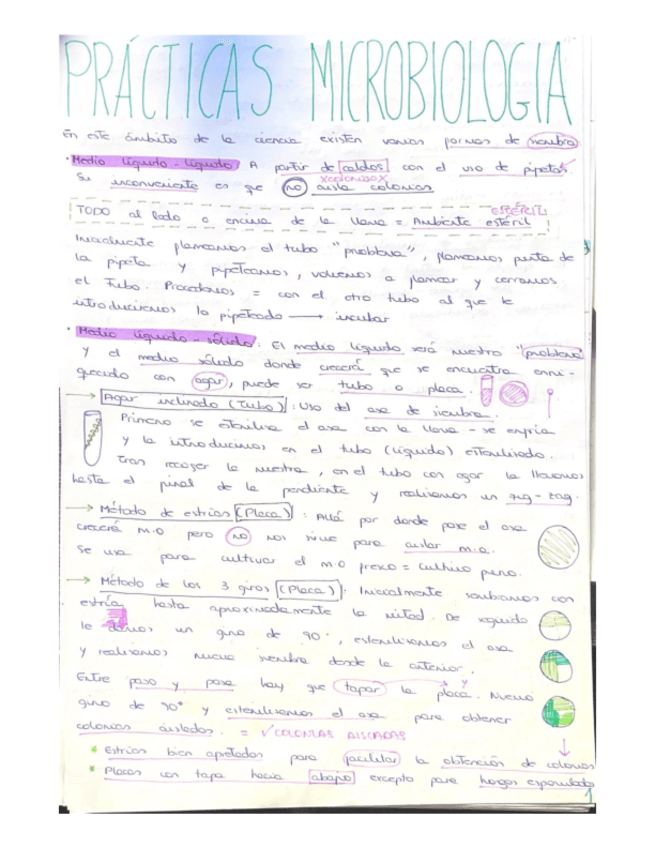 PRÁCTICAS MICROBIOLOGIA
En este ámbito de la ciencia existen varias formas de siembra
· Medio líquido - líquido: A partir de caldos con el uso de pipetas.
xcoloniasox
Su inconveniente es que no aisla colonias
ESTÉRIL
TODO al lado o encima de la llama = Ambiente estéril
Inicialmente flameamos el tubo "problema", flameamos punta de
la pipeta y pipeteamos, volvemos a flamear y cerramos
el tubo. Procedemos = con el otro tubo al que le
introduciremos lo pipeteado → incubar
· Medio líquido - sólido: El medio líquido será nuestro "problema"
y el medio sólido donde crecerá que se encuentra enri-
quecido con agar, puede ser tubo o placa.
→ Agar inclinado (Tubo): Uso del asa de siembra.
Primero se esteriliza el asa con la llama - se enfría
y la introducimos en el tubo (líquido) esterilizado.
tras recoger la muestra, en el tubo con agar la llevamos
hasta el final de la pendiente y realizamos un zig-zag.
→ Método de estrías (Placa): Allá por donde pase el asa
crecerá m.o pero no nos sirve para aislar m.o.
Se usa para cultivar el m.o fresco = cultivo puro.
→ Método de los 3 giros (Placa): Inicialmente sembramos con
estría hasta aproximadamente la mitad. De seguido
le damos un giro de 90°, esterilizamos el asa
y realizamos nueva siembra desde la anterior.
Entre paso y paso hay que tapar la placa. Nuevo
giro de 90° y esterilizamos el asa para obtener
colonias aisladas. = ✓COLONIAS AISLADAS
* Estrías bien apretadas para facilitar la obtención de colonias
* Placas con tapa hacia abajo excepto para hongos esporulados
1